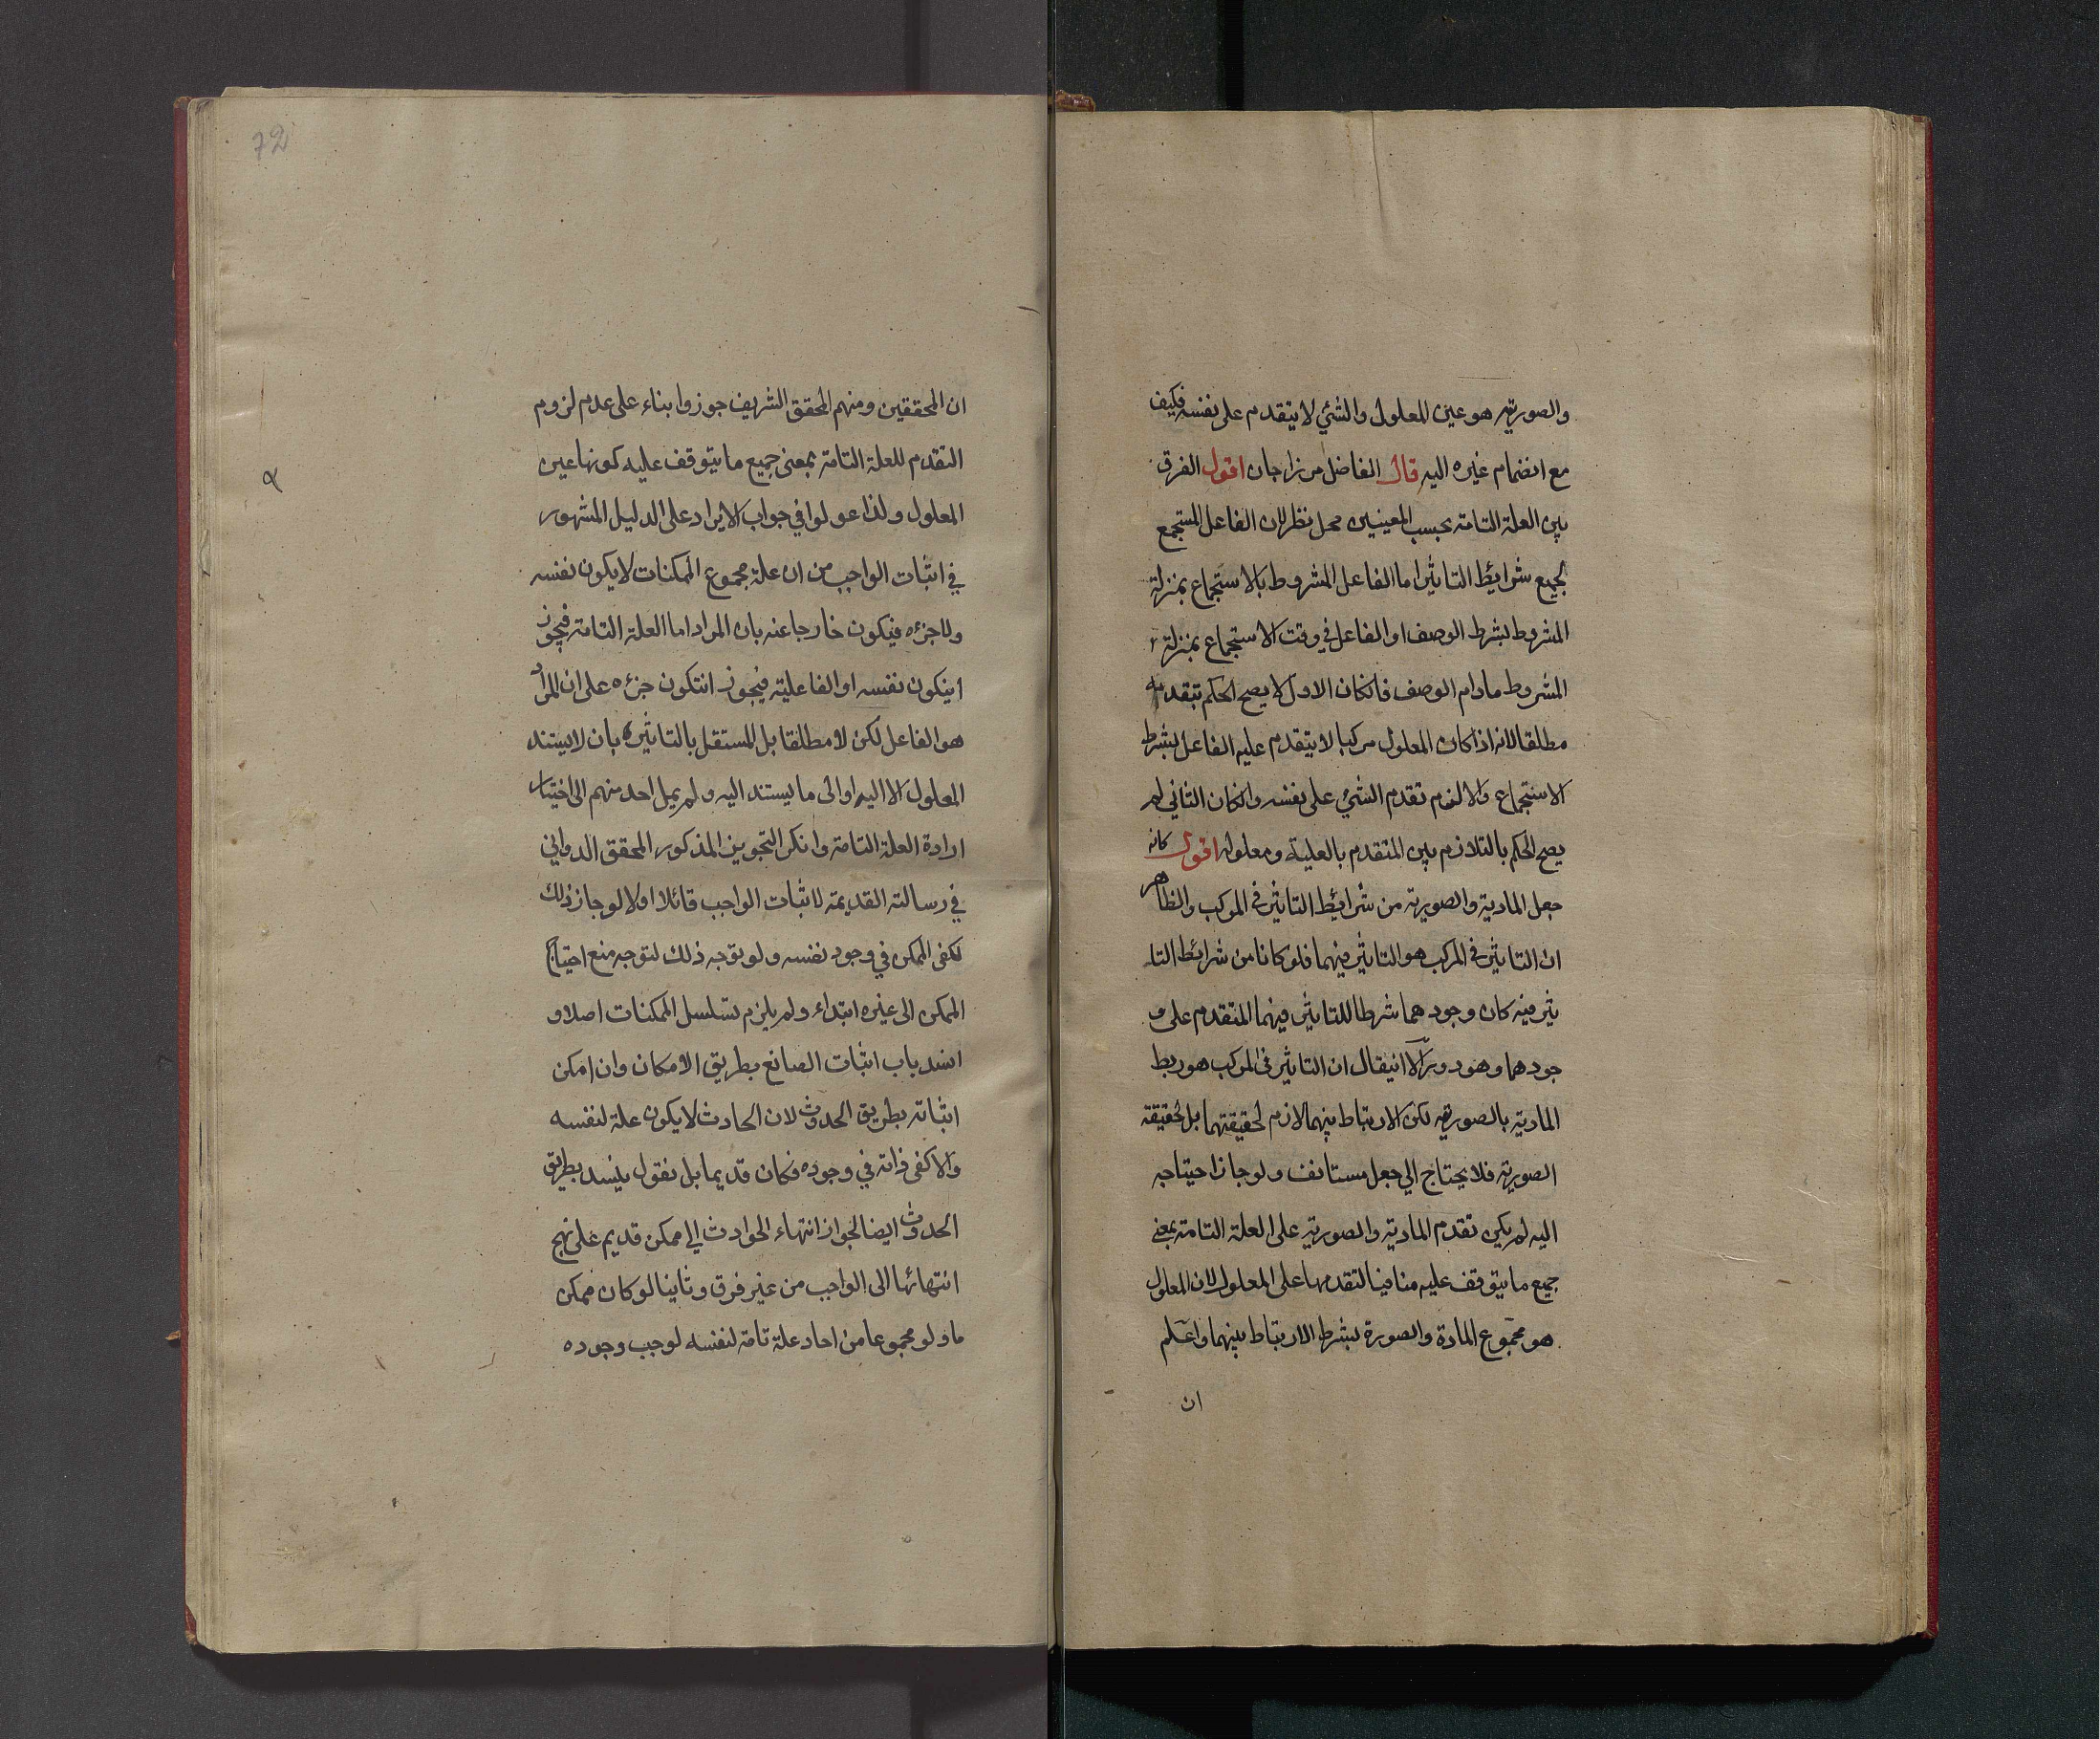 والصورية هو عين المعلول والشئ لا يتقدم على نفسه فكيف
مع انضمام غيره اليه قال الفاضل مرزاجان اقول الفرق
بين العلة التامة بحسب المعنيين محل نظر لان الفاعل المستجمع
لجميع شرائط التاثير اما الفاعل المشروط بالاستجماع بمنزلة
المشروط بشرط الوصف او الفاعل في وقت الاستجماع بمنزلة
المشروط مادام الوصف فانكان الاول لا يصح الحكم بتقدمه
مطلقا لانه اذا كان المعلول مركبا لا يتقدم عليه الفاعل بشرط
الاستجماع والا لزم تقدم الشئ على نفسه وانكان الثاني لم
يصح الحكم بالتلازم بين المتقدم بالعلية ومعلوله اقول كانه
جعل المادية والصورية من شرائط التاثير في المركب والظاهر
ان التاثير في المركب هو التاثير فيهما فلو كانا من شرائط التا
ثير فيه كان وجودهما شرطا للتاثير فيهما المتقدم على و
جودهما وهو دور الا انيقال ان التاثير في المركب هو ربط
المادية بالصورية لكن الارتباط بينهما لازم لحقيقتهما بل لحقيقة
الصورية فلا يحتاج الي جعل مستانف ولو جاز احتياجه
اليه لم يكن تقدم المادية والصورية على العلة التامة بمعنى
جميع ما يتوقف عليه منافيا لتقدمها على المعلول لان المعلول
هو مجموع المادة والصورة بشرط الارتباط بينهما واعلم
ان
72
ان المحققين ومنهم المحقق الشريف جوزوا بناء على عدم لزوم
التقدم للعلة التامة بمعنى جميع ما يتوقف عليه كونها عين
المعلول ولذا عولوا في جواب الايراد على الدليل المشهور
في اثبات الواجب من ان علة مجموع الممكنات لا يكون نفسه
ولا جزءه فيكون خارجا عنه بان المراد اما العلة التامة فيجوز
اينكون نفسه او الفاعلية فيجوز انتكون جزءه على ان المراد
هو الفاعل لكن لا مطلقا بل المستقل بالتاثير بان لا يستند
المعلول الا اليه او الى ما يستند اليه ولم يمل احد منهم الى اختيار
ارادة العلة التامة وانكر التجويز المذكور المحقق الدواني
في رسالته القديمة لاثبات الواجب قائلا اولا لو جاز ذلك
لكفى الممكن في وجود نفسه ولو توجه ذلك لتوجه منع احتياج
الممكن الى غيره ابتداء ولم يلزم تسلسل الممكنات اصلا و
انسد باب اثبات الصانع بطريق الامكان وان امكن
اثباته بطريق الحدوث لان الحادث لا يكون علة لنفسه
والا كفى ذاته في وجوده فكان قديما بل نقول ينسد بطريق
الحدوث ايضا لجواز انتهاء الحوادث الي ممكن قديم على نهج
انتهائها الى الواجب من غير فرق وثانيا لو كان ممكن
ما ولو مجموعا من احاد علة تامة لنفسه لوجب وجوده